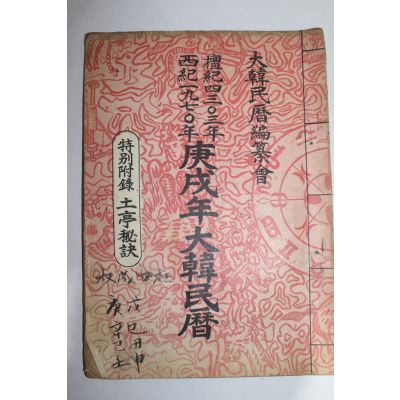 大韓民曆編纂會
檀紀四三〇三年
西紀一九七〇年
庚戌年大韓民曆
特別附錄 土亭秘訣